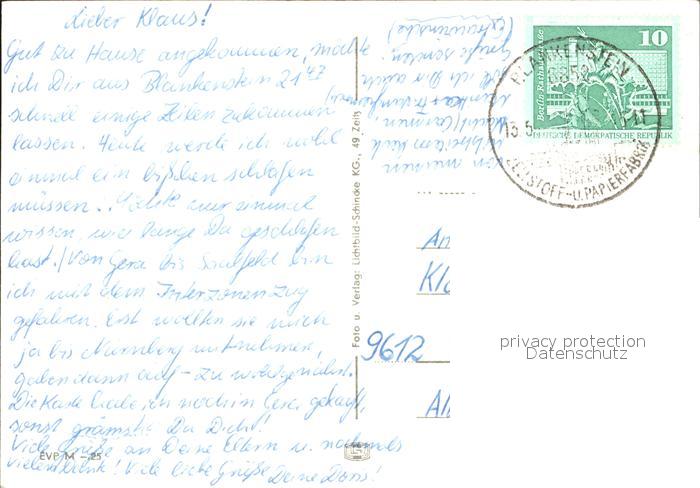 Lieber Klaus!
Gut zu Hause angekommen, möchte
ich Dir aus Blankenstein 21 47
schnell einige Zeilen zukommen
lassen. Heute werde ich wohl
einmal ein bißchen schlafen
müssen. Möchte nur einmal
wissen, wie lange Du geschlafen
hast. / Von Gera bis Saalfeld bin
ich mit dem Interzonenzug
gefahren. Erst wollten sie mich
ja bis Nürnberg mitnehmen,
gaben dann auf – zu
Die Karte habe ich noch in Gera gekauft,
sonst Du Dich!
Viele Grüße an Deine Eltern u. nochmals
vielen Dank! Viele liebe Grüße Deine
EVP M –,25
Foto u. Verlag: Lichtbild-Schincke KG., 49 Zeitz
von meinen
soll ich Dir auch
Grüße senden.
10
Berlin Rathausstraße
DEUTSCHE DEMOKRATISCHE REPUBLIK
BLANKENSTEIN
6852
13.5.
ZELLSTOFF-U.PAPIERFABRIK
An
Kl
9612
Al
privacy protection
Datenschutz